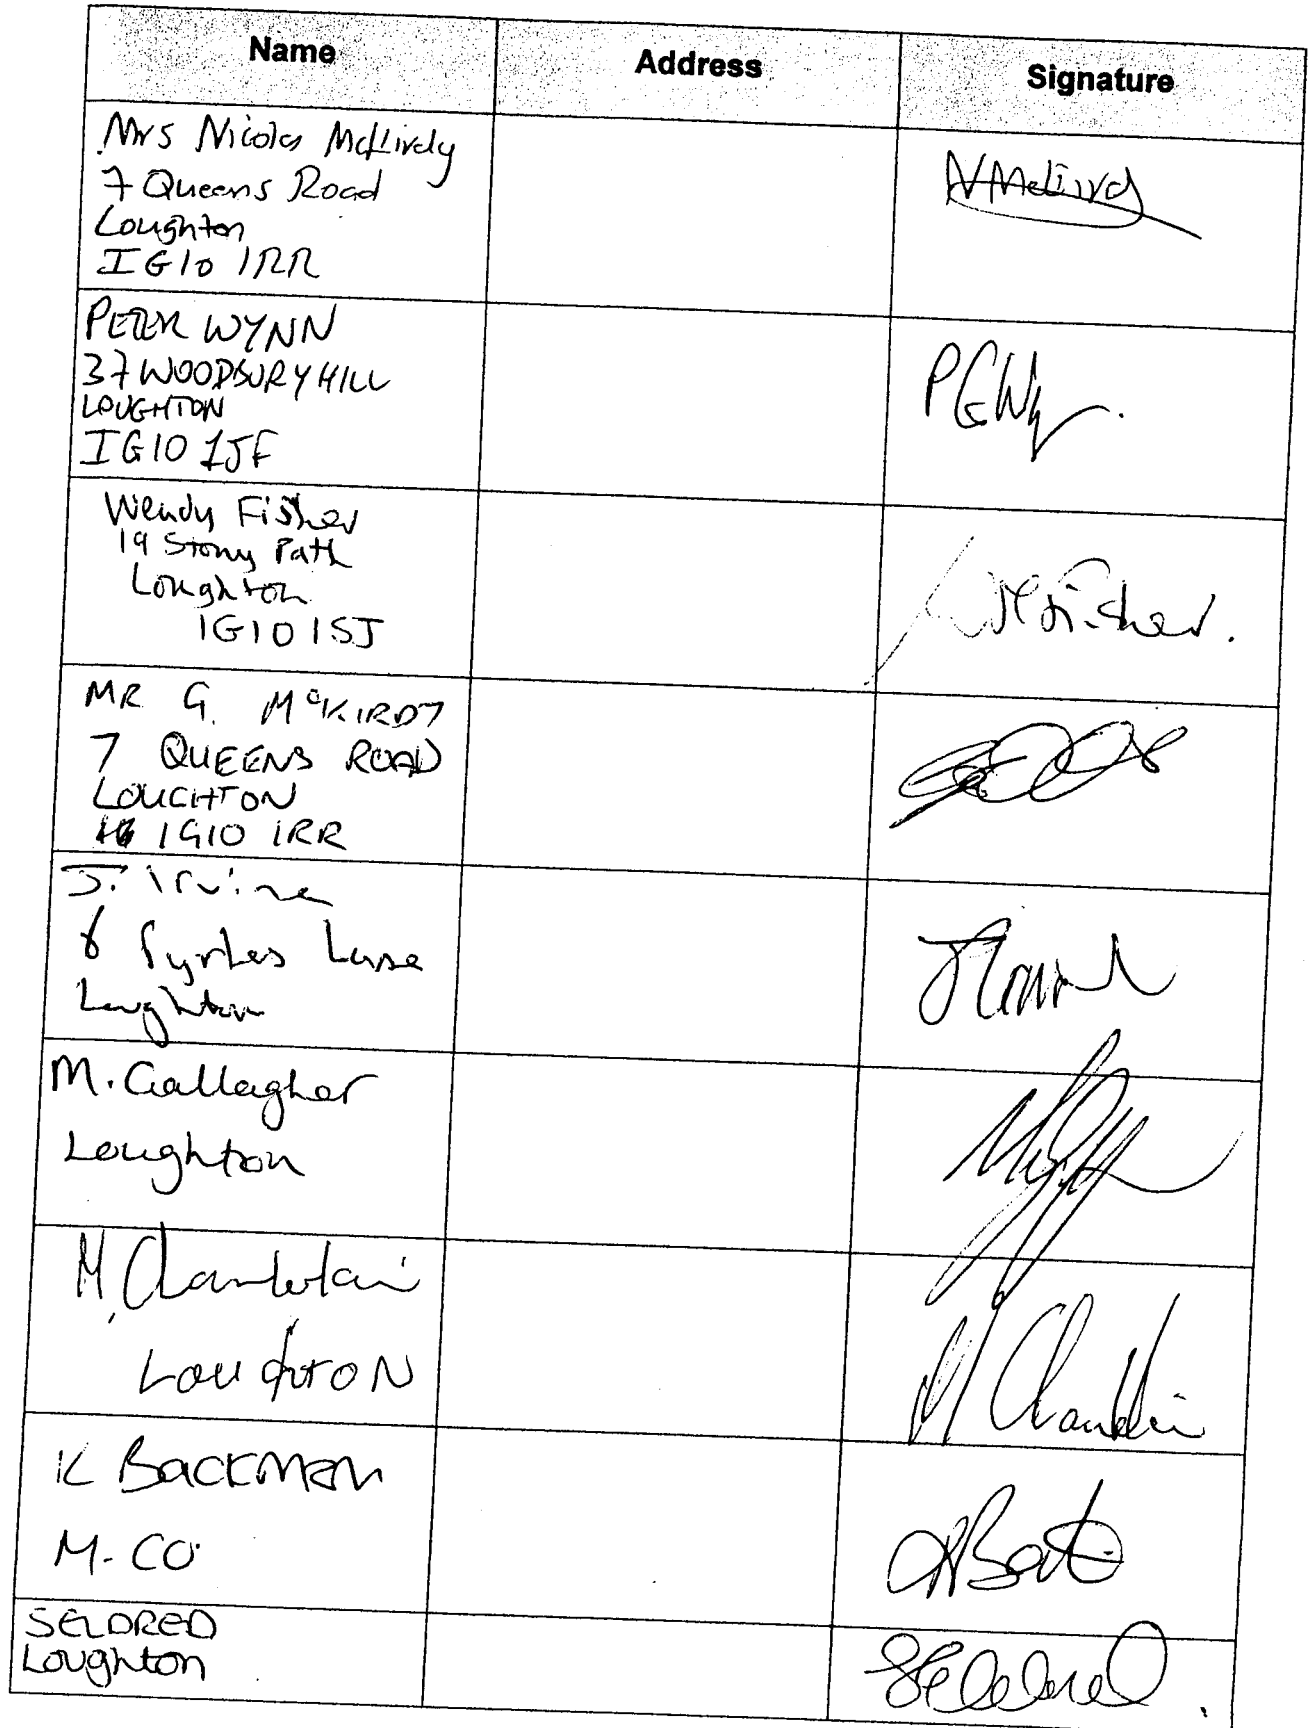 Name Address Signature
Mrs Nicola McKirdy
7 Queens Road
Loughton
IG10 1RR
PETER WYNN
37 WOODBURY HILL
LOUGHTON
IG10 1JF
Wendy Fisher
19 Stony Path
Loughton
IG10 1SJ
MR G. McKIRDY
7 QUEENS ROAD
LOUGHTON
IG10 1RR
J. Irvine
Pyrles Lane
Loughton
M. Gallagher
Loughton
M Chamberlain
LOUGHTON
K BACKMAN
M. CO
SELDRED
Loughton